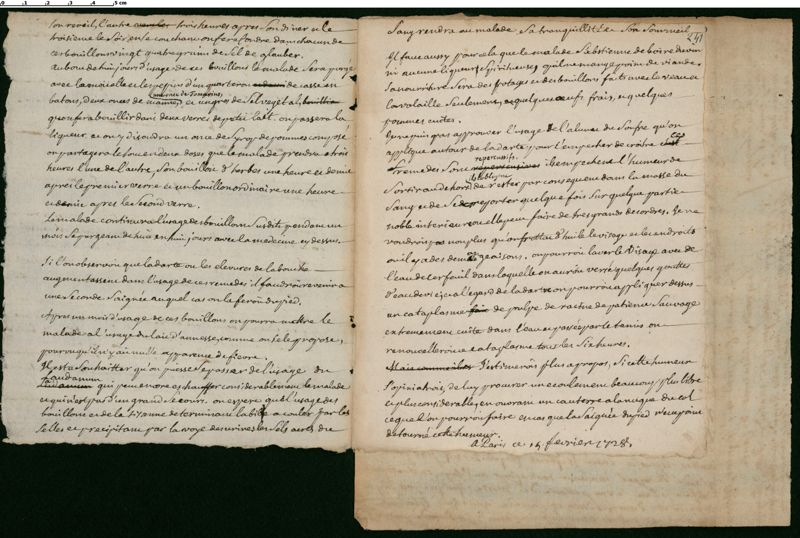 son reveil, l'autre trois heures apres son diner et le
troisieme le soir en se couchant on fera fondre dans chacun de
ces bouillons vingt quatre grains de sel de glauber.
au bout de huit jours d'usage de ces bouillons le malade sera purgé
avec la moielle et les pepins d'un quarteron de casse en
batons, deux onces de manne, et un gros de sel vegetal
qu'on fera bouillir dans deux verres de petit lait. on passera la
liqueur, et on y dissoudra un once de syrop de pommes composé
on partagera le tout en deux doses que le malade prendra a trois
heures l'une de l'autre, son bouillon d'herbes une heure et demie
apres le premier verre et un bouillon ordinaire une heure
et demie apres le second verre.
Le malade continuera l'usage des bouillons susdits pendant un
mois se purgeant de huit en huit jours avec la medecine cy dessus.
Si l'on observoit que la dartre ou les elevures de la bouche
augmentassent dans l'usage de ces remedes il faudroit revenir a
une seconde saignée auquel cas on la feroit du pied.
Apres un mois d'usage de ces bouillons on pourra mettre le
malade a l'usage du lait d'anesse, comme on se le propose,
pourvu qu'il n'y ait nulle apparence de fievre.
Il est a souhaitter qu'on puisse se passer de l'usage du
Laudanum
qui peut encore echauffer considerablement le malade
et qui n'est pas d'un grand secours. on espere que l'usage des
bouillons et de la tisanne determinant la bile a couler par les
selles et precipitant par la voye des urines les sels acres du
241
sang rendra au malade sa tranquillité et son sommeil
Il faut aussy pour cela que le malade s'abstienne de boire du vin
ni aucune liqueur spiritueuse, qu'il ne mange point de viande.
sa nourriture sera des potages et des bouillons faits avec le veau et
la volaille seulement, quelques oeufs frais, et quelques
pommes cuites.
Je ne puis pas approuver l'usage de l'alun et du soufre qu'on
applique autour de la dartre pour l'empecher de croitre ces
remedes sont repercussifs ils empechent l'humeur de
sortir au dehors l'obligent de rester par consequent dans la masse du
sang et de se reporter quelque fois sur quelque partie
noble interieure ou elle peut faire de tres grands desordres. Je ne
voudrois pas non plus qu'on frottat d'huile le visage et les endroits
ou il y a des demangeaisons. on pourroit laver le visage avec de
l'eau de cerfeuil dans laquelle on auroit versé quelques gouttes
d'eau de vie, et a l'egard de la dartre on pourroit appliquer dessus
un cataplasme de pulpe de racine de patience sauvage
extremement cuite dans l'eau et passée par le tamis on
renouvelleroit ce cataplasme tous les six heures.
J'estimerois plus a propos, si cette humeur
s'opiniatroit, de luy procurer un ecoulement beaucoup plus libre
et plus considerable, en ouvrant un cautere a la nuque du col
ce que l'on pourroit faire en cas que la saignée du pied n'eut point
detourné cette humeur.
A Paris ce 14 fevrier 1728